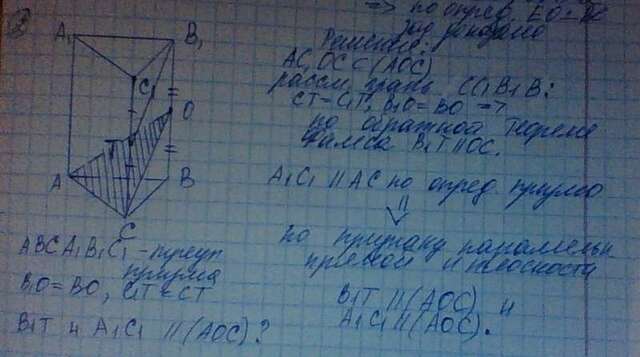 => по опред. EO =
Решение:
AC, OC ⊂ (AOC)
рассм. грань CC₁B₁B:
CT = C₁T, B₁O = BO =>
по обратной теореме
Фалеса B₁T || OC.
A₁C₁ || AC по опред. призмы
⇓
по признаку параллельн
прямой и плоскости
B₁T || (AOC) и
A₁C₁ || (AOC).
2
A₁
B₁
C₁
O
T
A
B
C
ABCA₁B₁C₁ - треуг
призма
B₁O = BO, C₁T = CT
B₁T и A₁C₁ || (AOC)?